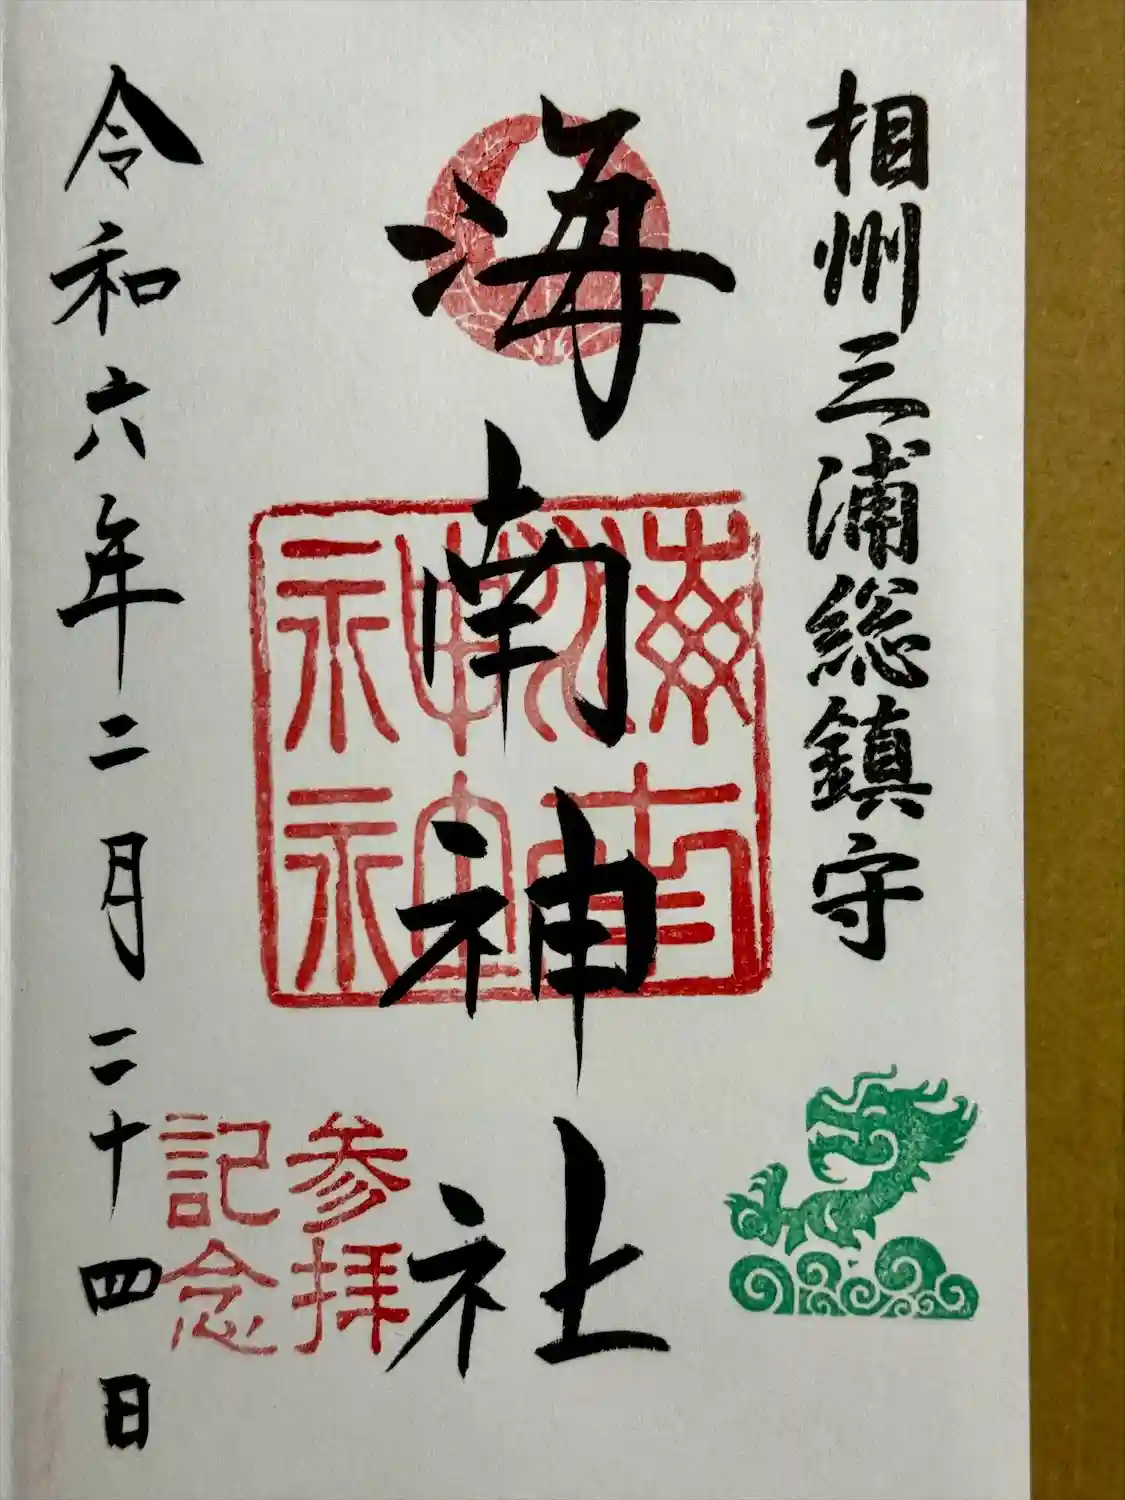 相州三浦総鎮守
海南神社
海南神社
参拝
記念
令和六年二月二十四日